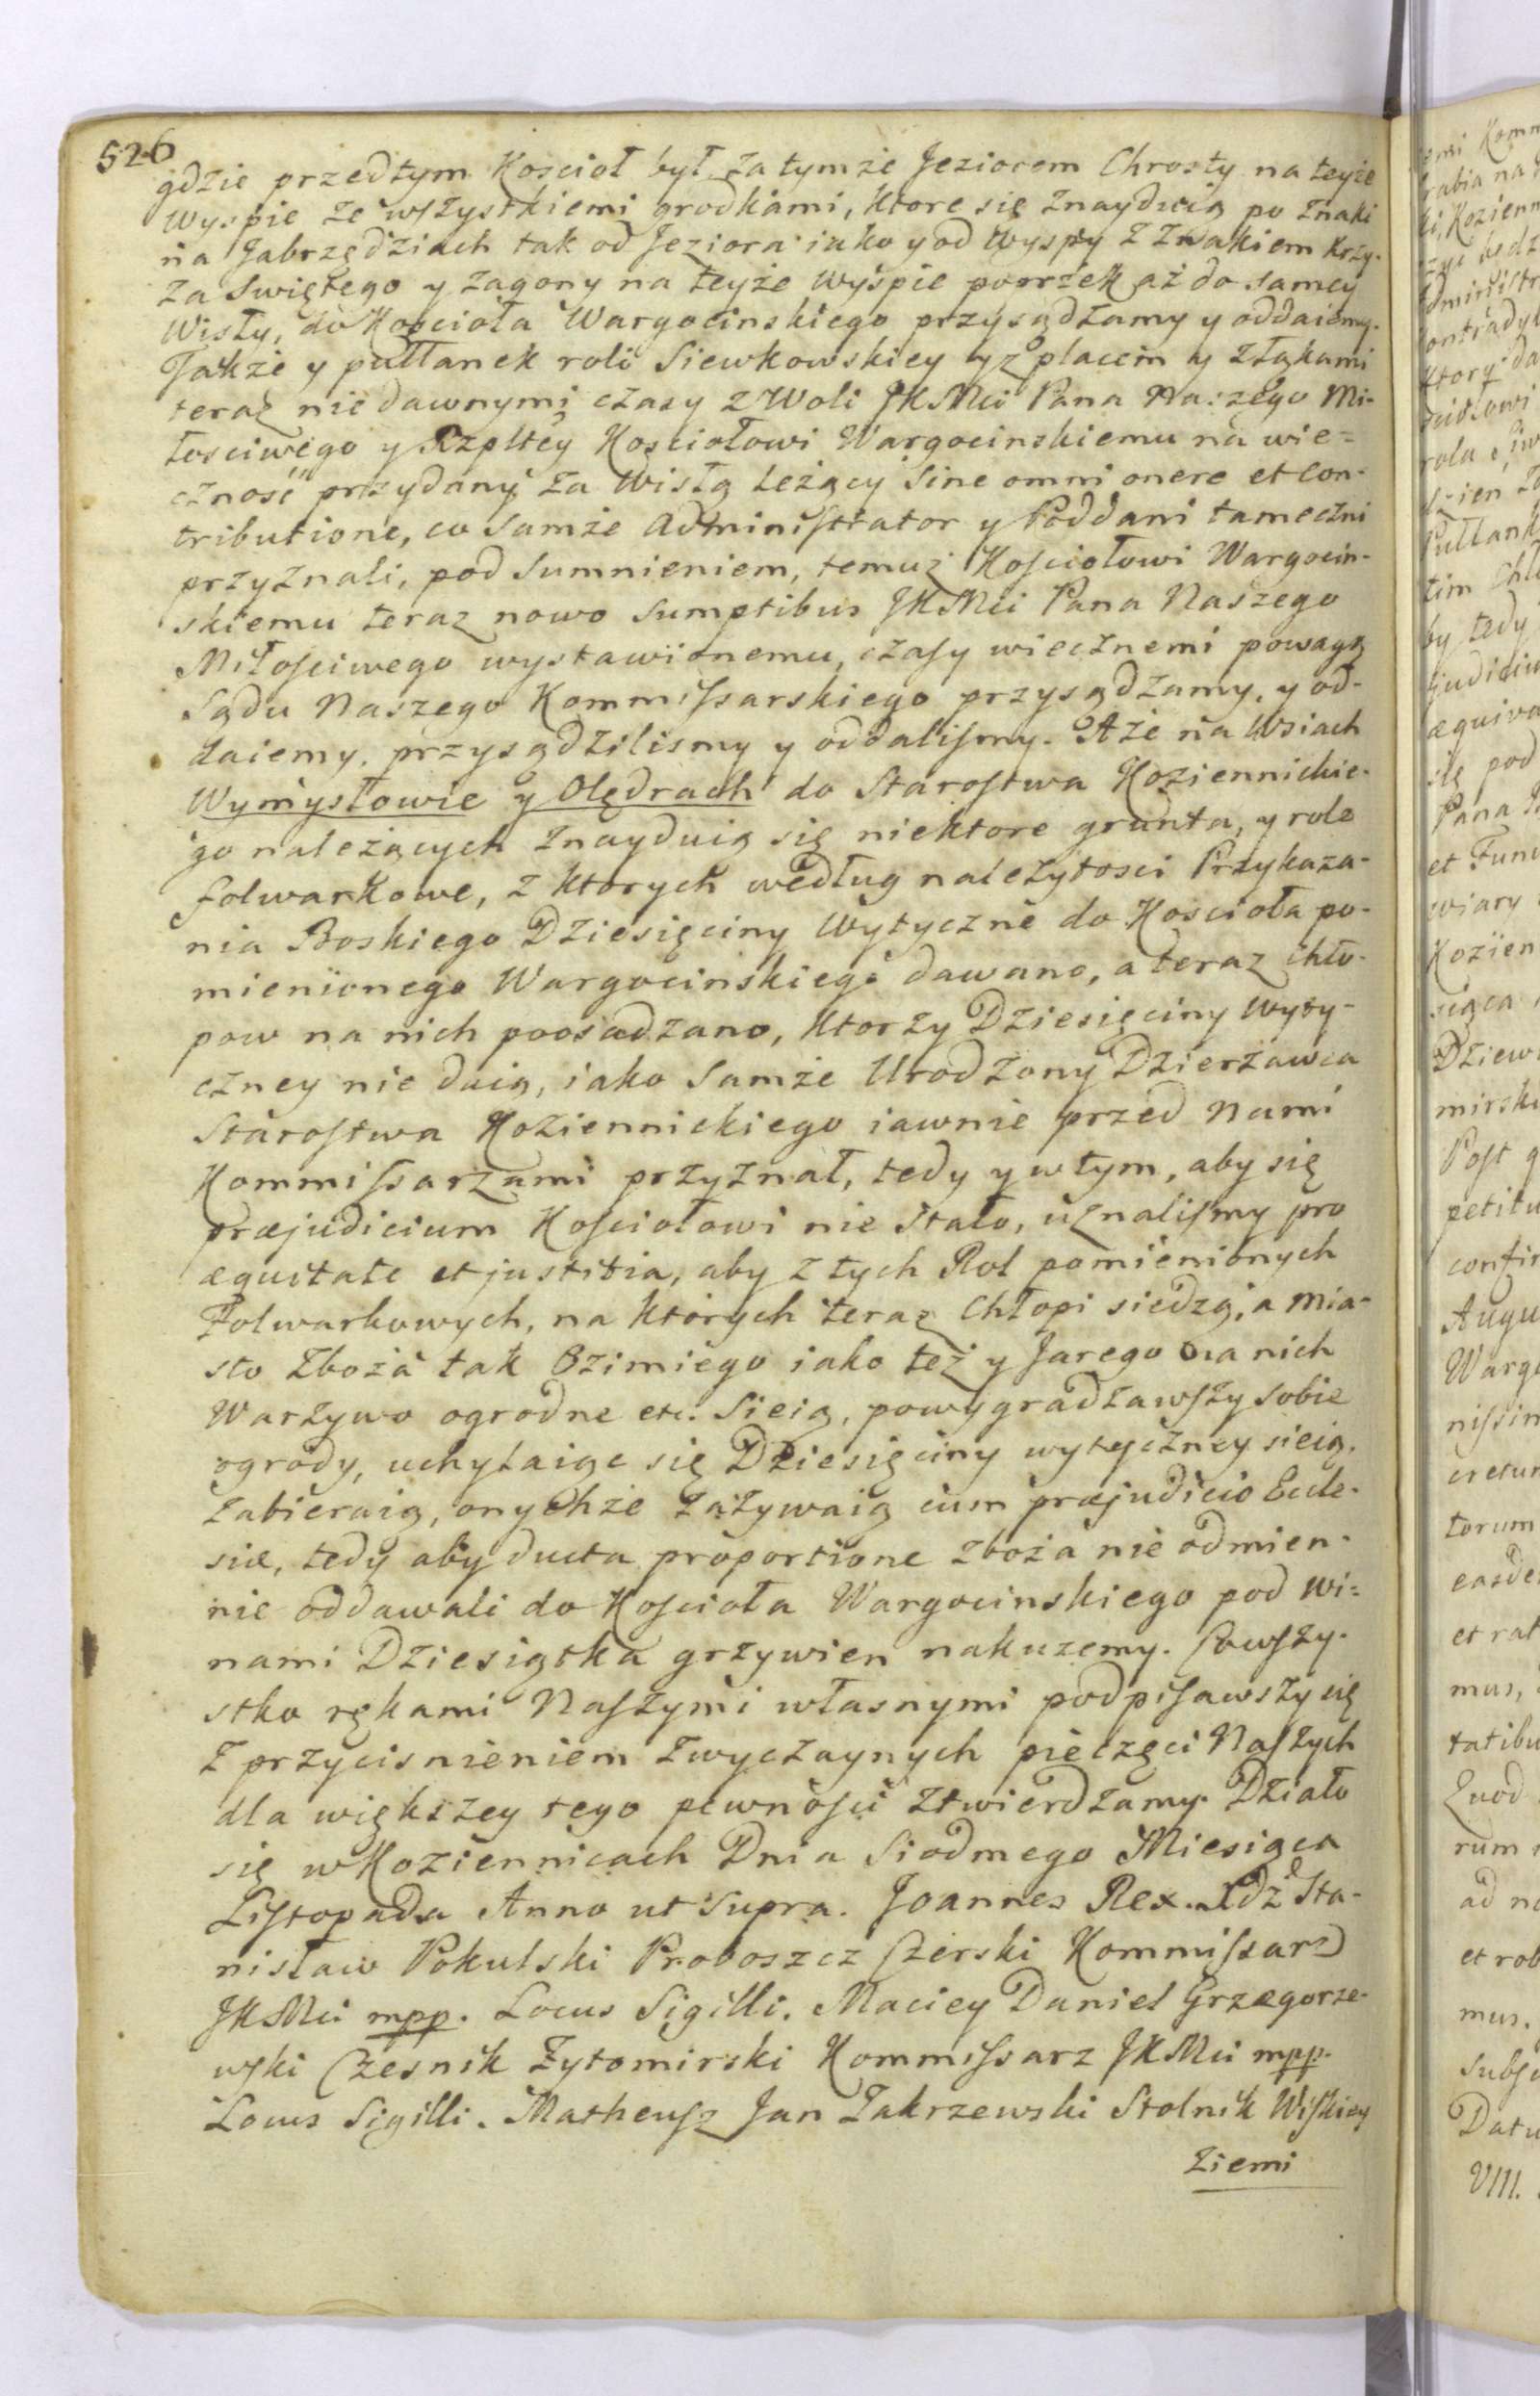 526
gdzie przedtym Koscioł był za tymże Jeziorem Chrosty na teyże
Wyspie ze wszystkiemi grodkami, ktore się znayduią po znaki
na Jabrzędziach tak od Jeziora iako y od Wyspy z Znakiem Krzy-
za Swiętego y zagony na teyże wyspie poprzek aż do samey
Wisły, do Koscioła Wargocinskiego przysądzamy y oddaiemy.
Także y pułłanek roli Siewkowskiey y z placem y z łąkami
teraz nie dawnymi czasy z Woli JKMci Pana Naszego Mi-
łosciwego y Rzpltey Kosciołowi Wargocinskiemu na wie=
cznosć przydany za Wisłą leżący Sine omni onere et con-
tributione, co Samże Administrator y Poddani tameczni
przyznali, pod Sumnieniem, temuż Kosciołowi Wargocin-
skiemu teraz nowo Sumptibus JKMci Pana Naszego
Miłosciwego wystawionemu, czasy wiecznemi powagą
Sądu Naszego Kommissarskiego przysądzamy, y od-
daiemy, przysądzilismy y oddalismy. Aże na Wsiach
Wymysłowie y Olędrach do Starostwa Koziennickie-
go należących znayduią się niektore grunta, y role
folwarkowe, z ktorych według należytosci Przykaza-
nia Boskiego Dziesięciny Wytyczne do Koscioła po-
mienionego Wargocinskiego dawano, a teraz chło-
pow na nich poosadzano, ktorzy Dziesięciny wyty-
czney nie daią, iako Samże Urodzony Dzierzawca
Starostwa Koziennickiego iawnie przed nami
Kommissarzami przyznał, tedy y w tym, aby się
præjudicium Kosciołowi nie stało, uznalismy pro
æquitate et justitia, aby z tych Rol pomienionych
Folwarkowych, na których teraz Chłopi siedzą, a mia-
sto Zboża tak Ozimiego iako też y Jarego na nich
Warzywo ogrodne etc. Sieią, powygradzawszy sobie
ogrody, uchylaiąc się Dziesięciny wytyczney sieią,
zabieraią, onychże zażywaią cum præjudicio Eccle-
siæ, tedy aby ducta proportione zboża nie odmien-
nie oddawali do Koscioła Wargocinskiego pod wi=
nami Dziesiątka grzywien nakazemy. Co wszy-
stko rękami Naszymi własnymi podpisawszy się
z przycisnieniem zwyczaynych pieczęci Naszych
dla większey tego pewnosci ztwierdzamy. Działo
się w Koziennicach Dnia Siodmego Miesiąca
Listopada Anno ut Supra. Joannes Rex. Xdz Sta-
nisław Pokulski Proboszcz Kommissarz
JKMci mpp. Locus Sigilli. Maciey Daniel Grzegorze-
wski Czesnik Żytomirski Kommissarz JKMci mpp.
Locus Sigilli. Matheusz Jan Zakrzewski Stolnik Wiskiey
Ziemi